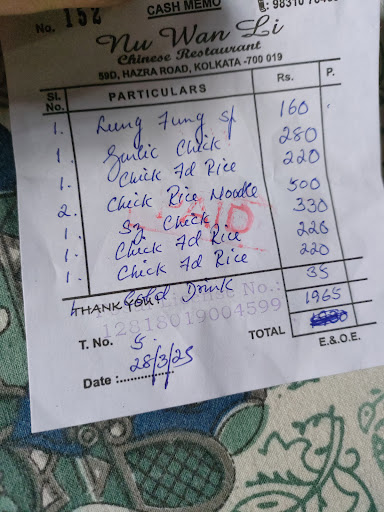 No. 152
CASH MEMO
: 98310
Nu Wan Li
Chinese Restaurant
59D, HAZRA ROAD, KOLKATA -700 019
Sl. No. PARTICULARS Rs. P.
1. Lung Fung Sp 160
1. Garlic Chick 280
1. Chick Fd Rice 220
2. Chick Rice Noodle 500
1. Sz. Chick 330
1. Chick Fd Rice 220
1. Chick Fd Rice 220
1. Cold Drink 35
PAID
THANK YOU
License No.:
12818019004599
1965
T. No. 5
TOTAL
Date : 28/3/25
E.& O.E.